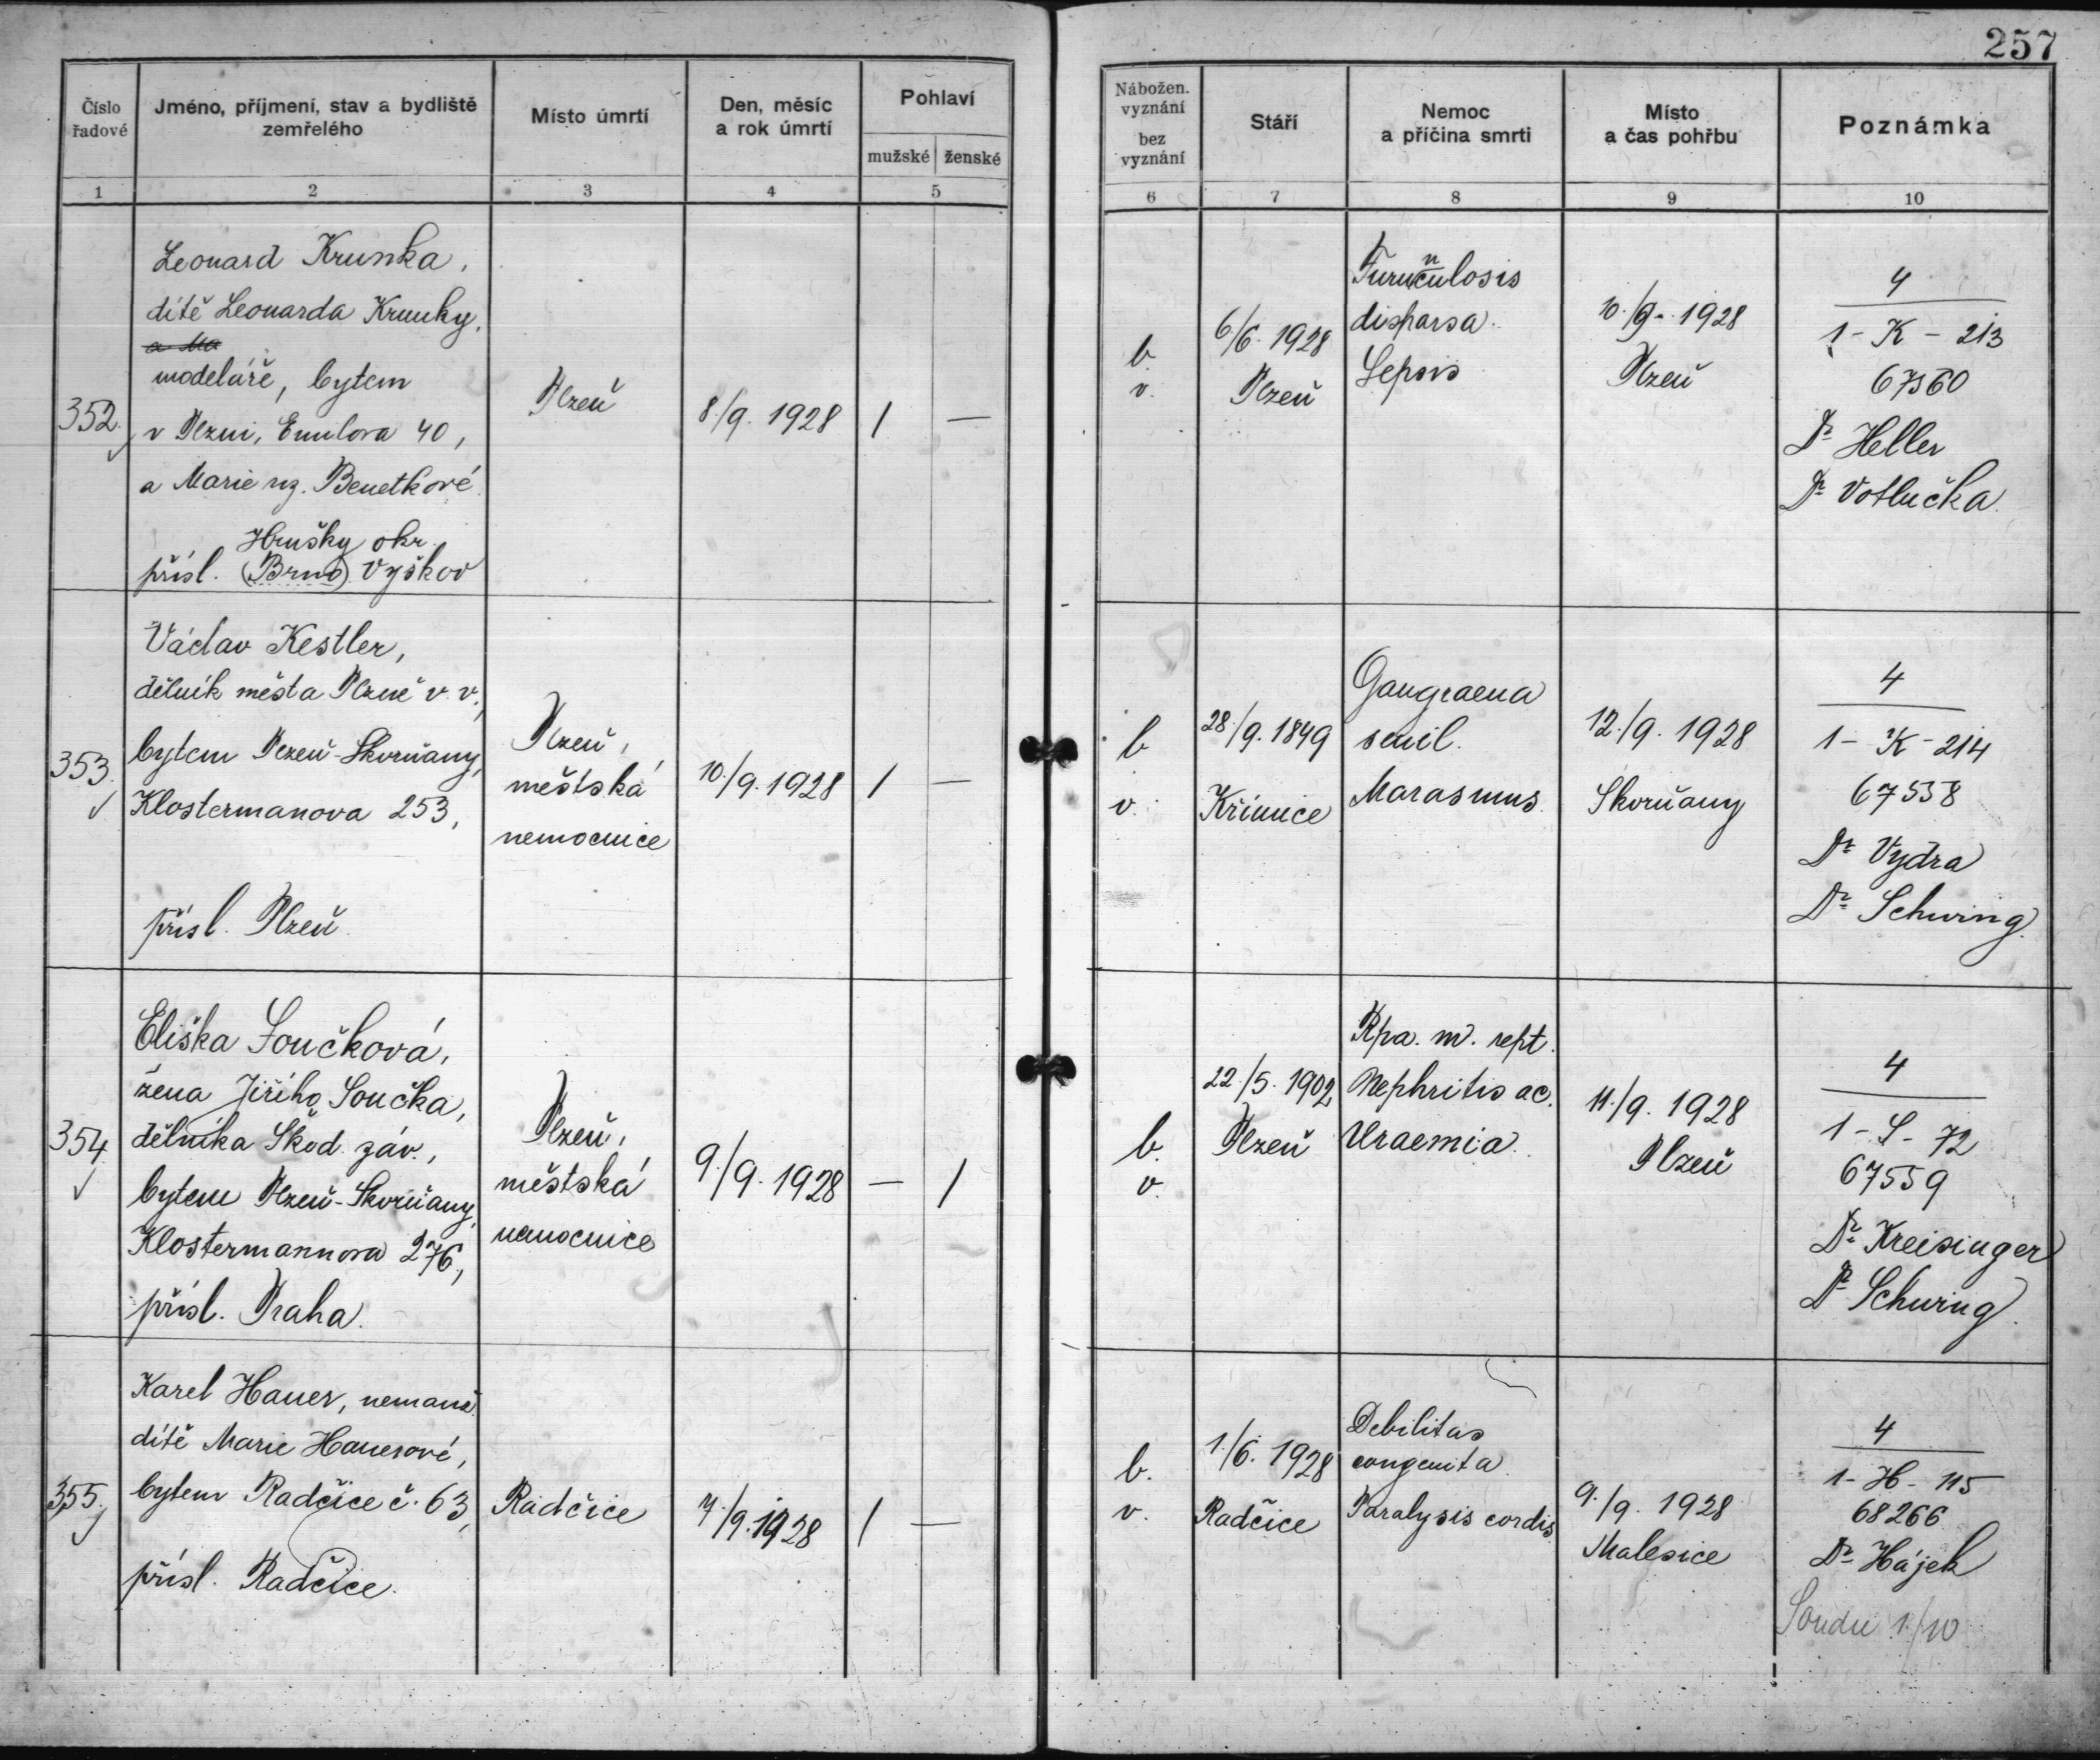 257
Číslo řadové
Jméno, příjmení, stav a bydliště zemřelého
Místo úmrtí
Den, měsíc a rok úmrtí
Pohlaví
mužské
ženské
Nábožen. vyznání
bez vyznání
Stáří
Nemoc a příčina smrti
Místo a čas pohřbu
Poznámka
1
2
3
4
5
6
7
8
9
10
352.
Leonard Krunka,
dítě Leonarda Krunky,
modeláře, bytem
v Plzni, 40,
a Marie roz. Benetkové
Hrušky okr.
přísl. (Brno) Vyškov
Plzeň
8./9. 1928
1
—
b.
v.
6./6. 1928
Plzeň
Furunculosis
disparsa.
Sepsis
10./9. 1928
Plzeň
4
1 - K - 213
67560
Dr Heller
Dr Votlučka
353.
Václav Kestler,
dělník města Plzně v. v.,
bytem Plzeň-Skvrňany,
Klostermanova 253,
přísl. Plzeň.
Plzeň,
městská
nemocnice
10./9. 1928
1
—
b
v.
28./9. 1849
Křimice
Gangraena
senil.
Marasmus.
12./9. 1928
Skvrňany
4
1 - K - 214
67558
Dr Vydra
Dr Schwing.
354.
Eliška Součková,
žena Jiřího Součka,
dělníka Škod. záv.,
bytem Plzeň-Skvrňany,
Klostermannova 276,
přísl. Praha.
Plzeň,
městská
nemocnice
9./9. 1928
—
1
b.
v.
22./5. 1902
Plzeň
Rpa. m. sept.
Nephritis ac.
Uraemia.
11./9. 1928
Plzeň
4
1 - S - 72
67559
Dr Kreisinger
Dr Schwing.
355.
Karel Hauer, nemanž.
dítě Marie Hauerové,
bytem Radčice č. 63,
přísl. Radčice.
Radčice
7./9. 1928
1
—
b.
v.
1./6. 1928
Radčice
Debilitas
congenita.
Paralysis cordis
9./9. 1928
Malesice
4
1 - H - 115
68266
Dr Hájek
Soudu 1./10